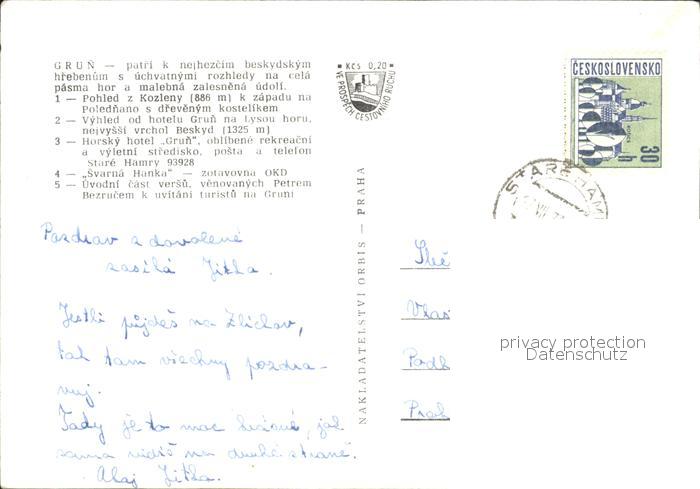 GRUŇ — patří k nejhezčím beskydským
hřebenům s úchvatnými rozhledy na celá
pásma hor a malebná zalesněná údolí.
1 — Pohled z Kozleny (886 m) k západu na
Poledňano s dřevěným kostelíkem
2 — Výhled od hotelu Gruň na Lysou horu,
nejvyšší vrchol Beskyd (1325 m)
3 — Horský hotel „Gruň", oblíbené rekreační
a výletní středisko, pošta a telefon
Staré Hamry 93928
4 — „Švarná Hanka" — zotavovna OKD
5 — Úvodní část veršů, věnovaných Petrem
Bezručem k uvítání turistů na Gruni
Kčs 0,20
VE PROSPĚCH CESTOVNÍHO RUCHU
ČESKOSLOVENSKO
30 h
STARÉ HAM
NAKLADATELSTVÍ ORBIS — PRAHA
Pozdrav z dovolené
zasílá Jitka.
Jestli půjdeš na Zlíchov,
tak tam všechny pozdra-
vuj.
Tady je to moc krásné, jak
sama vidíš na druhé straně.
Ahoj Jitka.
Vlas
Podb
Prah
privacy protection
Datenschutz